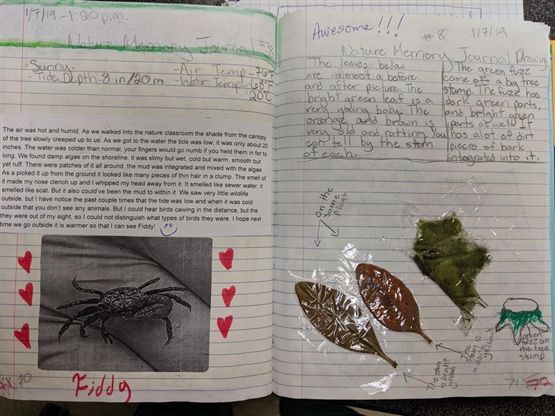 1/7/19 - 1:20 p.m.
Nature Memory Journal #8
Sunny
- Air Temp - 76°F
- Tide Depth - 8 in/20 m
- Water Temp - 68°F
20°C
The air was hot and humid. As we walked into the nature classroom the shade from the canopy
of the tree slowly creeped up to us. As we got to the water the tide was low, it was only about 20
inches. The water was colder than normal, your fingers would go numb if you held them in for to
long. We found damp algae on the shoreline, it was slimy but wet, cold but warm, smooth but
yet ruff. There were patches of it all around, the mud was integrated and mixed with the algae
As a picked it up from the ground it looked like many pieces of thin hair in a clump. The smell of
it made my nose clench up and I whipped my head away from it. It smelled like sewer water, it
smelled like scat. But it also could've been the mud to within it. We saw very little wildlife
outside, but I have notice the past couple times that the tide was low and when it was cold
outside that you don't see any animals. But I could hear birds cawing in the distance, but the
they were out of my sight, so I could not distinguish what types of birds they were. I hope next
time we go outside it is warmer so that I can see Fiddy!
Fiddy
70
Awesome!!!
#8
1/7/19
Nature Memory Journal Drawing
The leaves below
are almost a before
and after picture. The
bright green leaf is a
very young baby. The
orange and brown is
very old and rotting. You
can tell by the stem
of each.
The green fuzz
came off a big tree
stump. The fuzz has
dark green parts,
and bright green
parts of cold. It
has a lot of dirt
pieces of bark
intagrated into it.
on the
same
plant
The stem
is bright
green
The stem
is dark
green fuzz on
the tree
stump